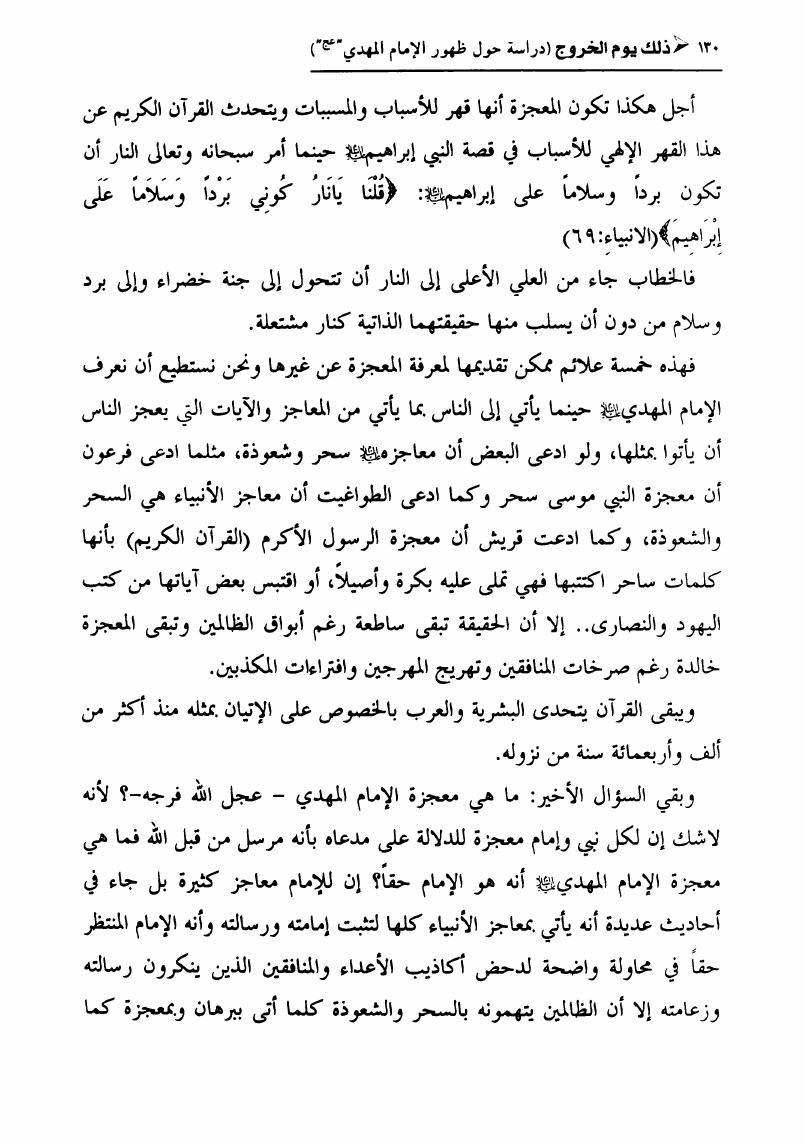 ١٣٠ ذلك يوم الخروج (دراسة حول ظهور الإمام المهدي"عج")
أجل هكذا تكون المعجزة أنها قهر للأسباب والمسببات ويتحدث القرآن الكريم عن
هذا القهر الإلهي للأسباب في قصة النبي إبراهيم حينما أمر سبحانه وتعالى النار أن
تكون برداً وسلاماً على إبراهيم: ﴿قُلْنَا يَانَارُ كُونِي بَرْداً وَسَلاَماً عَلَى
إِبْرَاهِيمَ﴾(الانبياء:٦٩)
فالخطاب جاء من العلي الأعلى إلى النار أن تتحول إلى جنة خضراء وإلى برد
وسلام من دون أن يسلب منها حقيقتهما الذاتية كنار مشتعلة.
فهذه خمسة علائم ممكن تقديمها لمعرفة المعجزة عن غيرها ونحن نستطيع أن نعرف
الإمام المهدي حينما يأتي إلى الناس بما يأتي من المعاجز والآيات التي يعجز الناس
أن يأتوا بمثلها، ولو ادعى البعض أن معاجزه سحر وشعوذة، مثلما ادعى فرعون
أن معجزة النبي موسى سحر وكما ادعى الطواغيت أن معاجز الأنبياء هي السحر
والشعوذة، وكما ادعت قريش أن معجزة الرسول الأكرم (القرآن الكريم) بأنها
كلمات ساحر اكتتبها فهي تملى عليه بكرة وأصيلاً، أو اقتبس بعض آياتها من كتب
اليهود والنصارى.. إلا أن الحقيقة تبقى ساطعة رغم أبواق الظالمين وتبقى المعجزة
خالدة رغم صرخات المنافقين وتهريج المهرجين وافتراءات المكذبين.
ويبقى القرآن يتحدى البشرية والعرب بالخصوص على الإتيان بمثله منذ أكثر من
ألف وأربعمائة سنة من نزوله.
وبقي السؤال الأخير: ما هي معجزة الإمام المهدي – عجل الله فرجه–؟ لأنه
لاشك إن لكل نبي وإمام معجزة للدلالة على مدعاه بأنه مرسل من قبل الله فما هي
معجزة الإمام المهدي أنه هو الإمام حقاً؟ إن للإمام معاجز كثيرة بل جاء في
أحاديث عديدة أنه يأتي بمعاجز الأنبياء كلها لتثبت إمامته ورسالته وأنه الإمام المنتظر
حقاً في محاولة واضحة لدحض أكاذيب الأعداء والمنافقين الذين ينكرون رسالته
وزعامته إلا أن الظالمين يتهمونه بالسحر والشعوذة كلما أتى ببرهان وبمعجزة كما